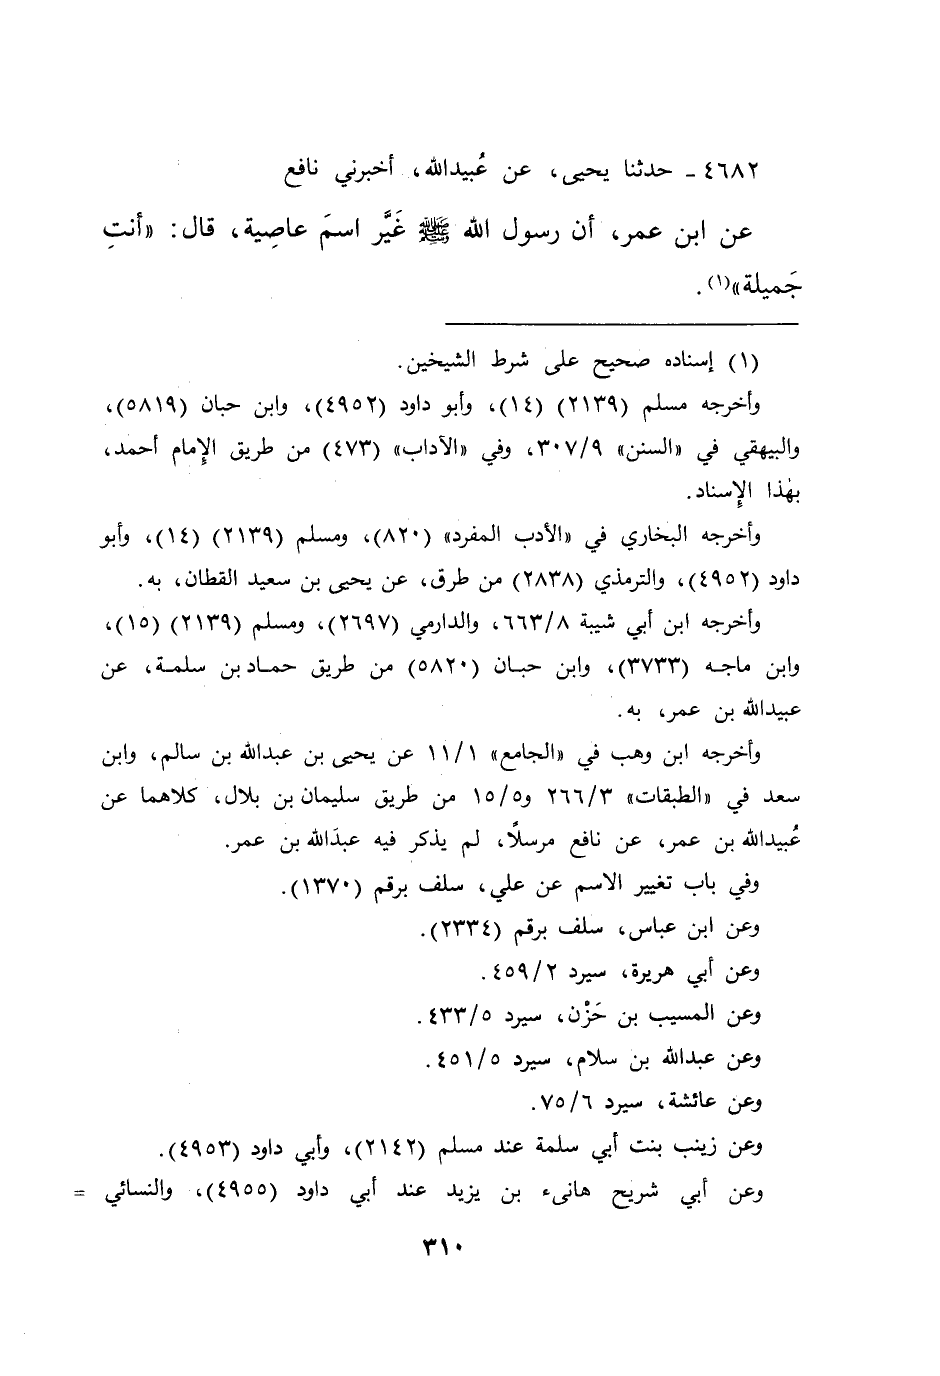 ٤٦٨٢ ـ حدثنا يحيى، عن عُبيدالله، أخبرني نافع
عن ابن عمر، أن رسول الله ﷺ غَيَّر اسمَ عاصِية، قال: «أنتِ
جَميلة»(١).
(١) إسناده صحيح على شرط الشيخين.
وأخرجه مسلم (٢١٣٩) (١٤)، وأبو داود (٤٩٥٢)، وابن حبان (٥٨١٩)،
والبيهقي في «السنن» ٣٠٧/٩، وفي «الآداب» (٤٧٣) من طريق الإمام أحمد،
بهٰذا الإسناد.
وأخرجه البخاري في «الأدب المفرد» (٨٢٠)، ومسلم (٢١٣٩) (١٤)، وأبو
داود (٤٩٥٢)، والترمذي (٢٨٣٨) من طرق، عن يحيى بن سعيد القطان، به.
وأخرجه ابن أبي شيبة ٦٦٣/٨، والدارمي (٢٦٩٧)، ومسلم (٢١٣٩) (١٥)،
وابن ماجه (٣٧٣٣)، وابن حبان (٥٨٢٠) من طريق حماد بن سلمة، عن
عبيدالله بن عمر، به.
وأخرجه ابن وهب في «الجامع» ١١/١ عن يحيى بن عبدالله بن سالم، وابن
سعد في «الطبقات» ٢٦٦/٣ و١٥/٥ من طريق سليمان بن بلال، كلاهما عن
عُبيدالله بن عمر، عن نافع مرسلًا، لم يذكر فيه عبدَالله بن عمر.
وفي باب تغيير الاسم عن علي، سلف برقم (١٣٧٠).
وعن ابن عباس، سلف برقم (٢٣٣٤).
وعن أبي هريرة، سيرد ٤٥٩/٢.
وعن المسيب بن حَزْن، سيرد ٤٣٣/٥.
وعن عبدالله بن سلام، سيرد ٤٥١/٥.
وعن عائشة، سيرد ٧٥/٦.
وعن زينب بنت أبي سلمة عند مسلم (٢١٤٢)، وأبي داود (٤٩٥٣).
وعن أبي شريح هانىء بن يزيد عند أبي داود (٤٩٥٥)، والنسائي =
٣١٠